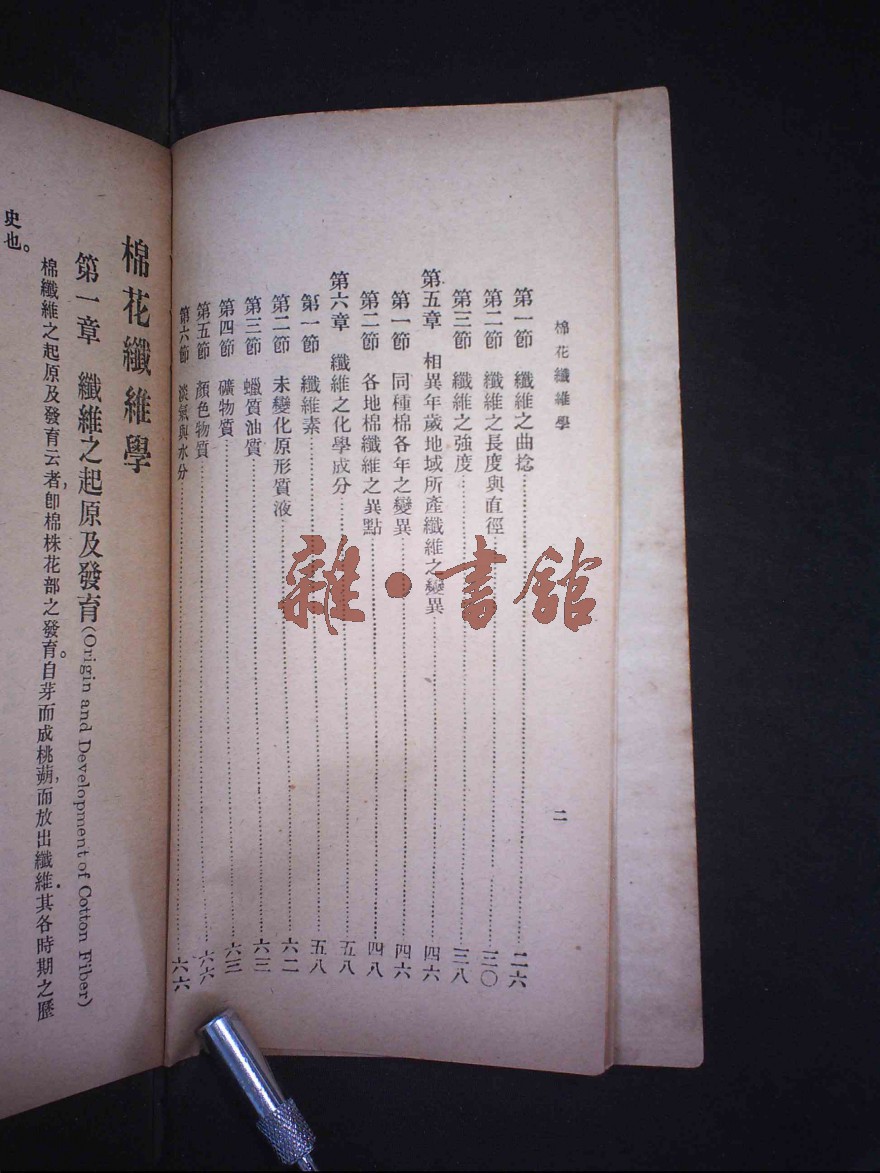 棉花纖維學
二
第一節 纖維之曲捻 二六
第二節 纖維之長度與直徑 三〇
第三節 纖維之強度 三八
第五章 相異年歲地域所產纖維之變異 四六
第一節 同種棉各年之變異 四六
第二節 各地棉纖維之異點 四八
第六章 纖維之化學成分 五八
第一節 纖維素 五八
第二節 未變化原形質液 六二
第三節 蠟質油質 六三
第四節 礦物質 六三
第五節 顏色物質 六六
第六節 淡氣與水分 六六
雜·書館
棉花纖維學
第一章 纖維之起原及發育(Origin and Development of Cotton Fiber)
棉纖維之起原及發育云者,卽棉株花部之發育。自芽而成桃蒴,而放出纖維,其各時期之歷
史也。